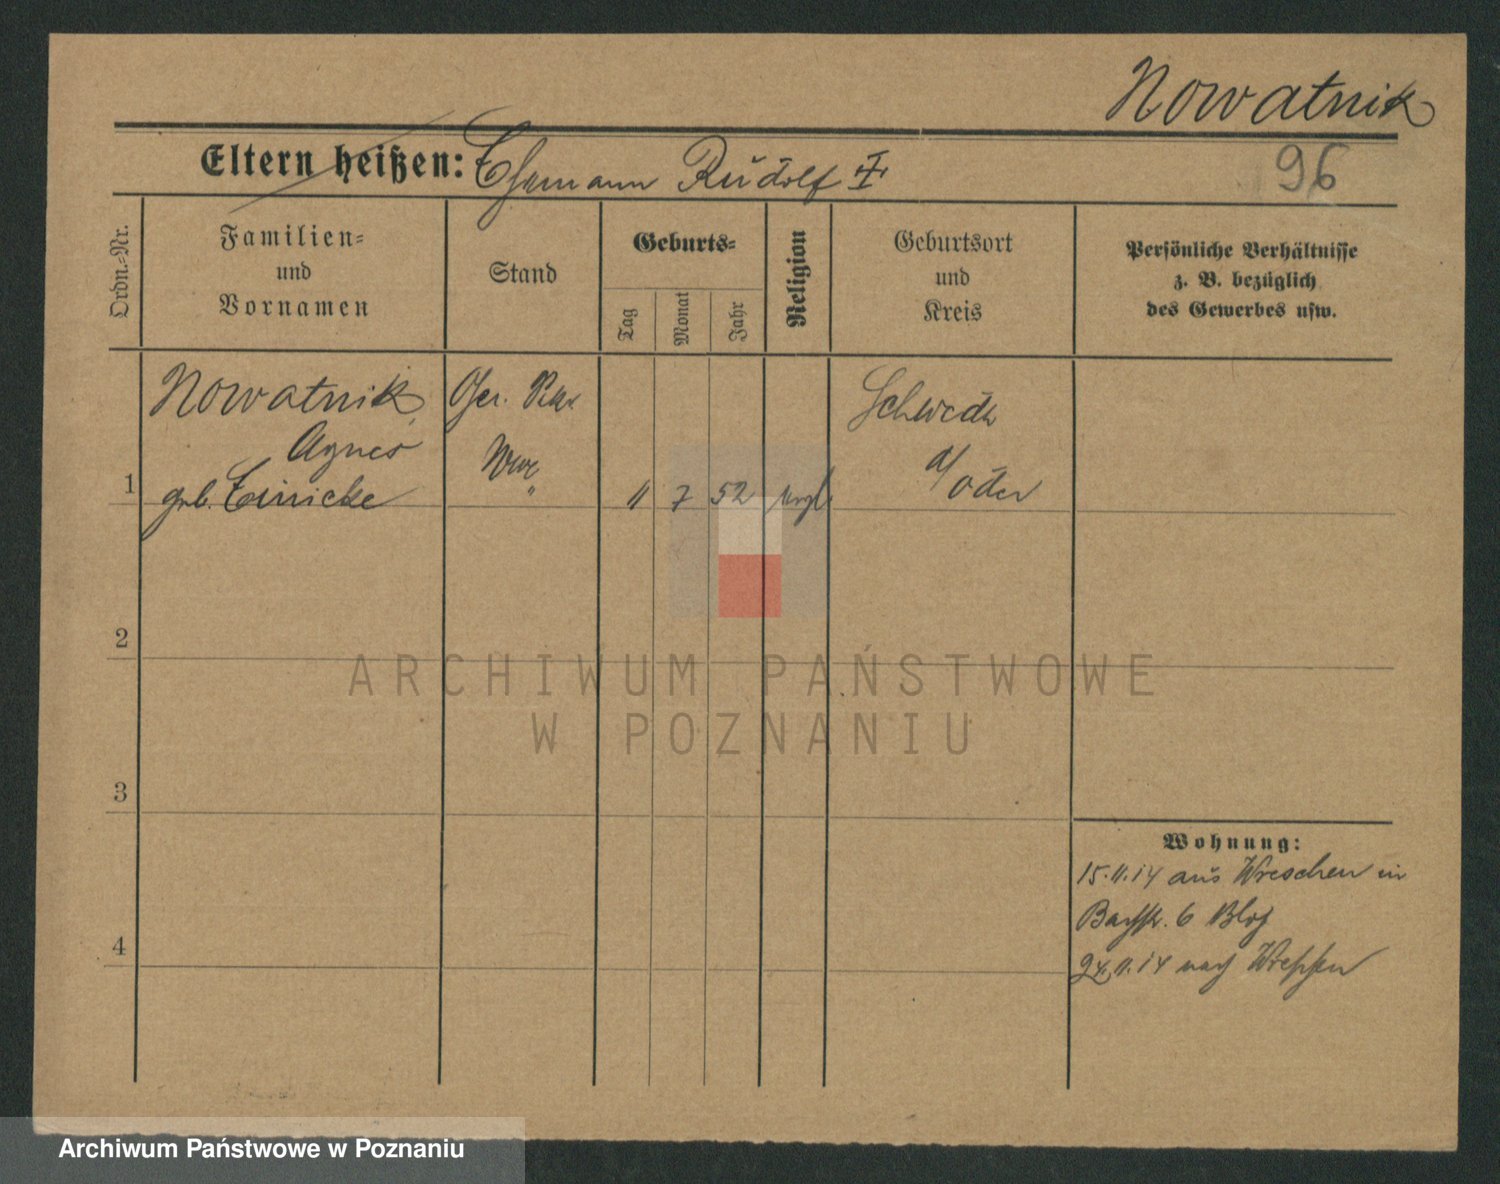 Nowatnik
96
Eltern heißen: Ehemann Rudolf
Ordn.-Nr.
Familien-
und
Vornamen
Stand
Geburts-
Tag
Monat
Jahr
Religion
Geburtsort
und
Kreis
Persönliche Verhältnisse
z. B. bezüglich
des Gewerbes usw.
1
Nowatnik
Agnes
geb.
Wwe
11 7 52
Schwedt
a/Oder
2
3
4
Wohnung:
15.11.14 aus Wreschen in
6
24.11.14 nach Wreschen
ARCHIWUM PAŃSTWOWE
W POZNANIU
Archiwum Państwowe w Poznaniu